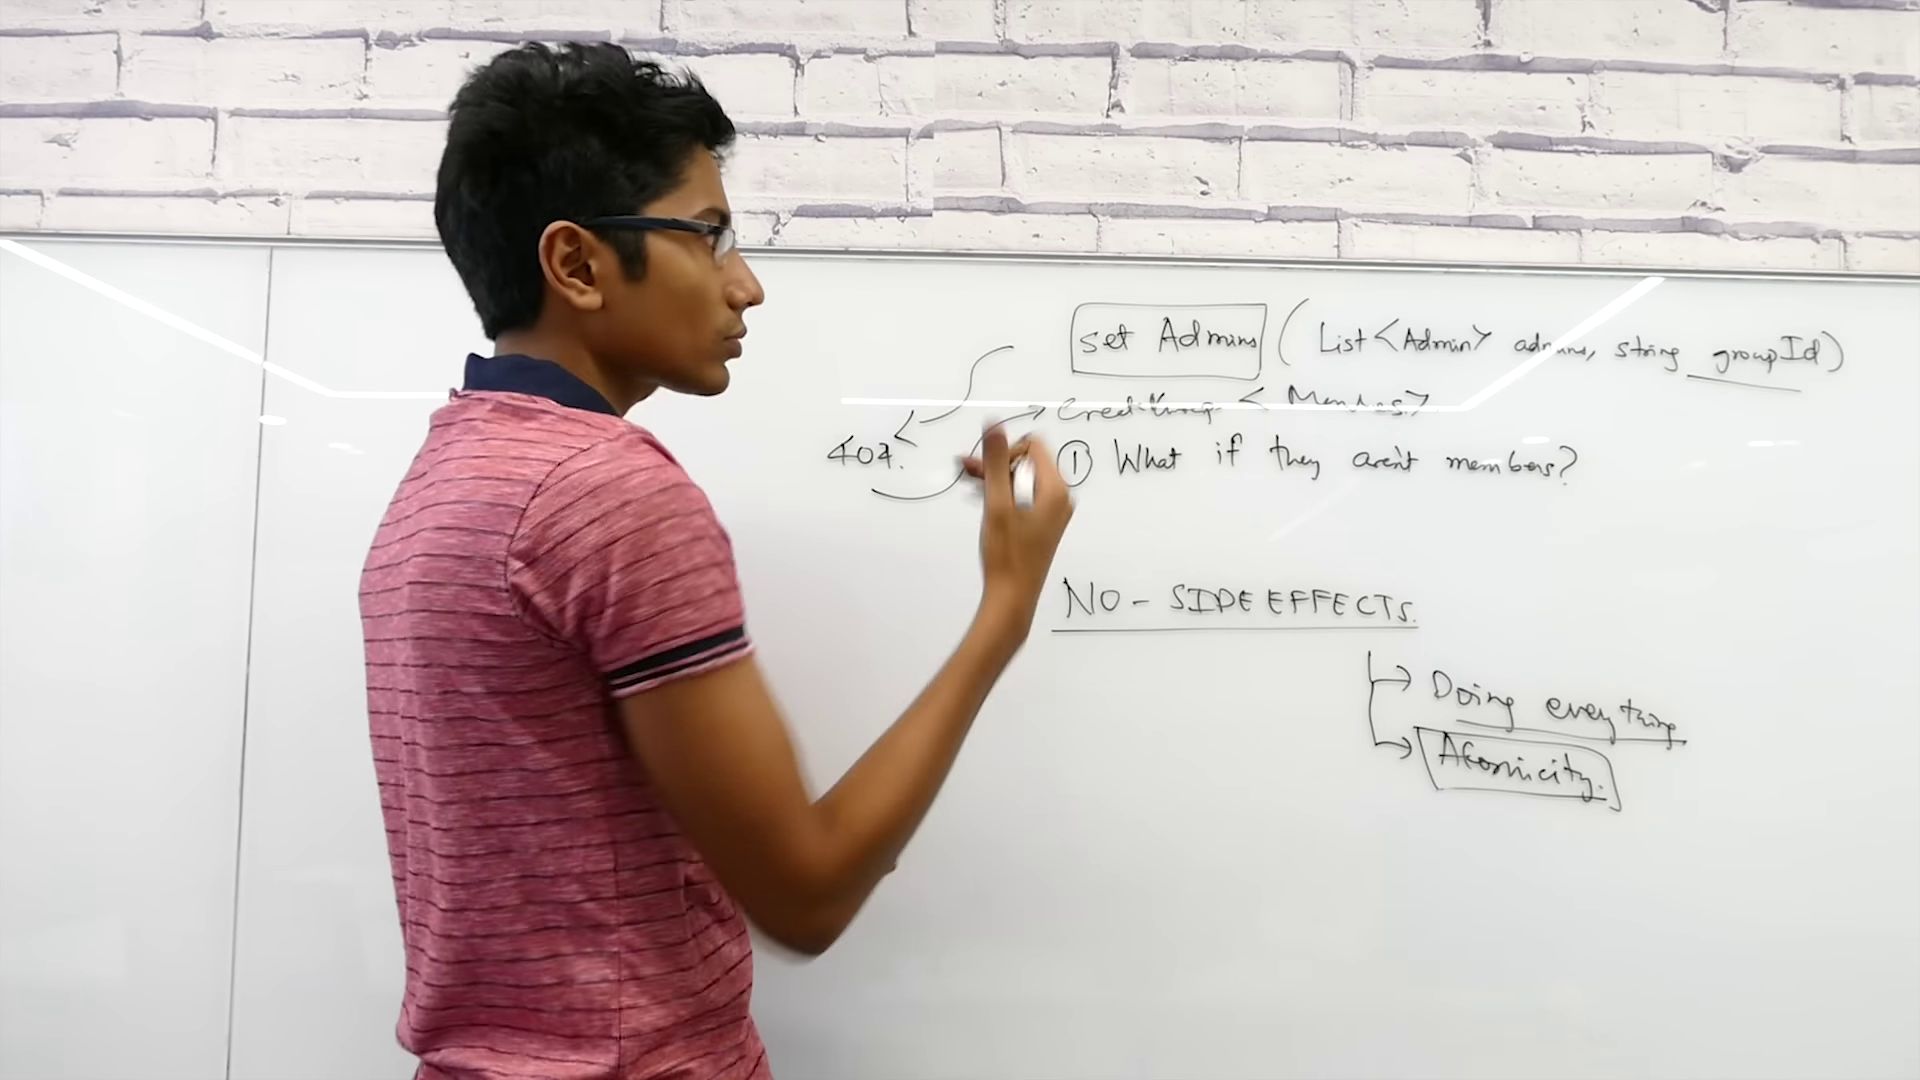 set Admins ( List <Admin> admins, string groupId)
< Members>
404.
① What if they aren't members?
NO - SIDE EFFECTS.
→ Doing everything
→ Atomicity.